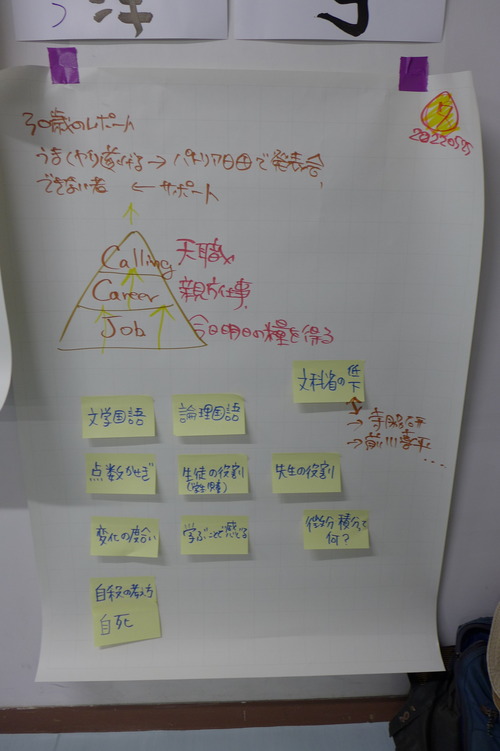 夕
20220575
30歳のレポート
うまくやり遂げる → パトリア日田で発表会
できない者 ← サポート
Calling 天職
Career 親方仕事
Job 今日明日の糧を得る
文科省の低下
→ 寺脇研
→ 前川喜平
...
文学国語
論理国語
点数かせぎ
生徒の役割
先生の役割
変化の度合い
学ぶことせず感じる
微分積分って
何?
自殺の考え方
自死